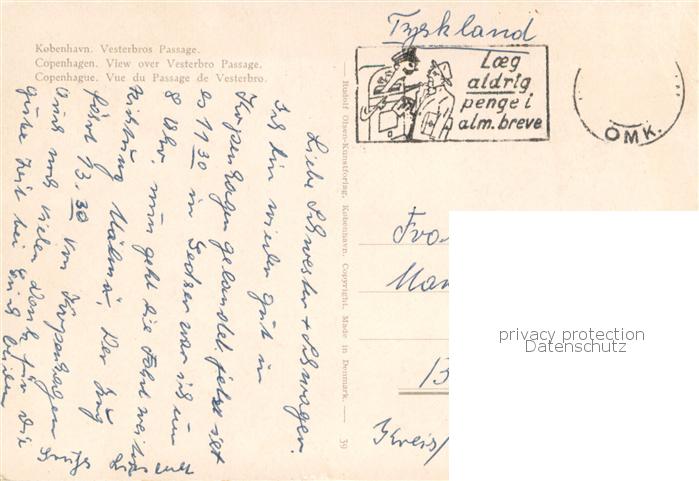 København. Vesterbros Passage.
Copenhagen. View over Vesterbro Passage.
Copenhague. Vue du Passage de Vesterbro.
Tyskland
Læg
aldrig
penge i
alm. breve
OMK.
Rudolf Olsen-Kunstforlag. København. Copyright. Made in Denmark.
39
Liebe Schwester + Schwager.
Ich bin wieder gut in
Kopenhagen gelandet. jetzt ist
es 11 30 in Gedser war ich um
8 Uhr, nun geht die Fahrt weiter
Richtung Malmö, Der Zug
fährt 13.30 von Kopenhagen
Auch noch vielen Dank für die
gute Zeit bei Euch
Kreis
privacy protection
Datenschutz